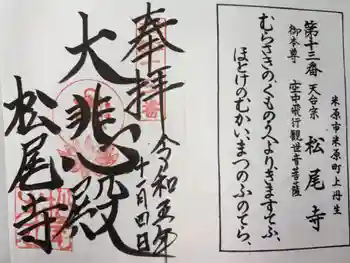 奉拝
令和五年
十一月四日
大悲殿
松尾寺
米原市米原町上丹生
第十三番 天台宗 松尾寺
御本尊 空中飛行観世音菩薩
むらさきの、くものうへよりきますてふ、
ほとけのむかい、まつのふのてら、